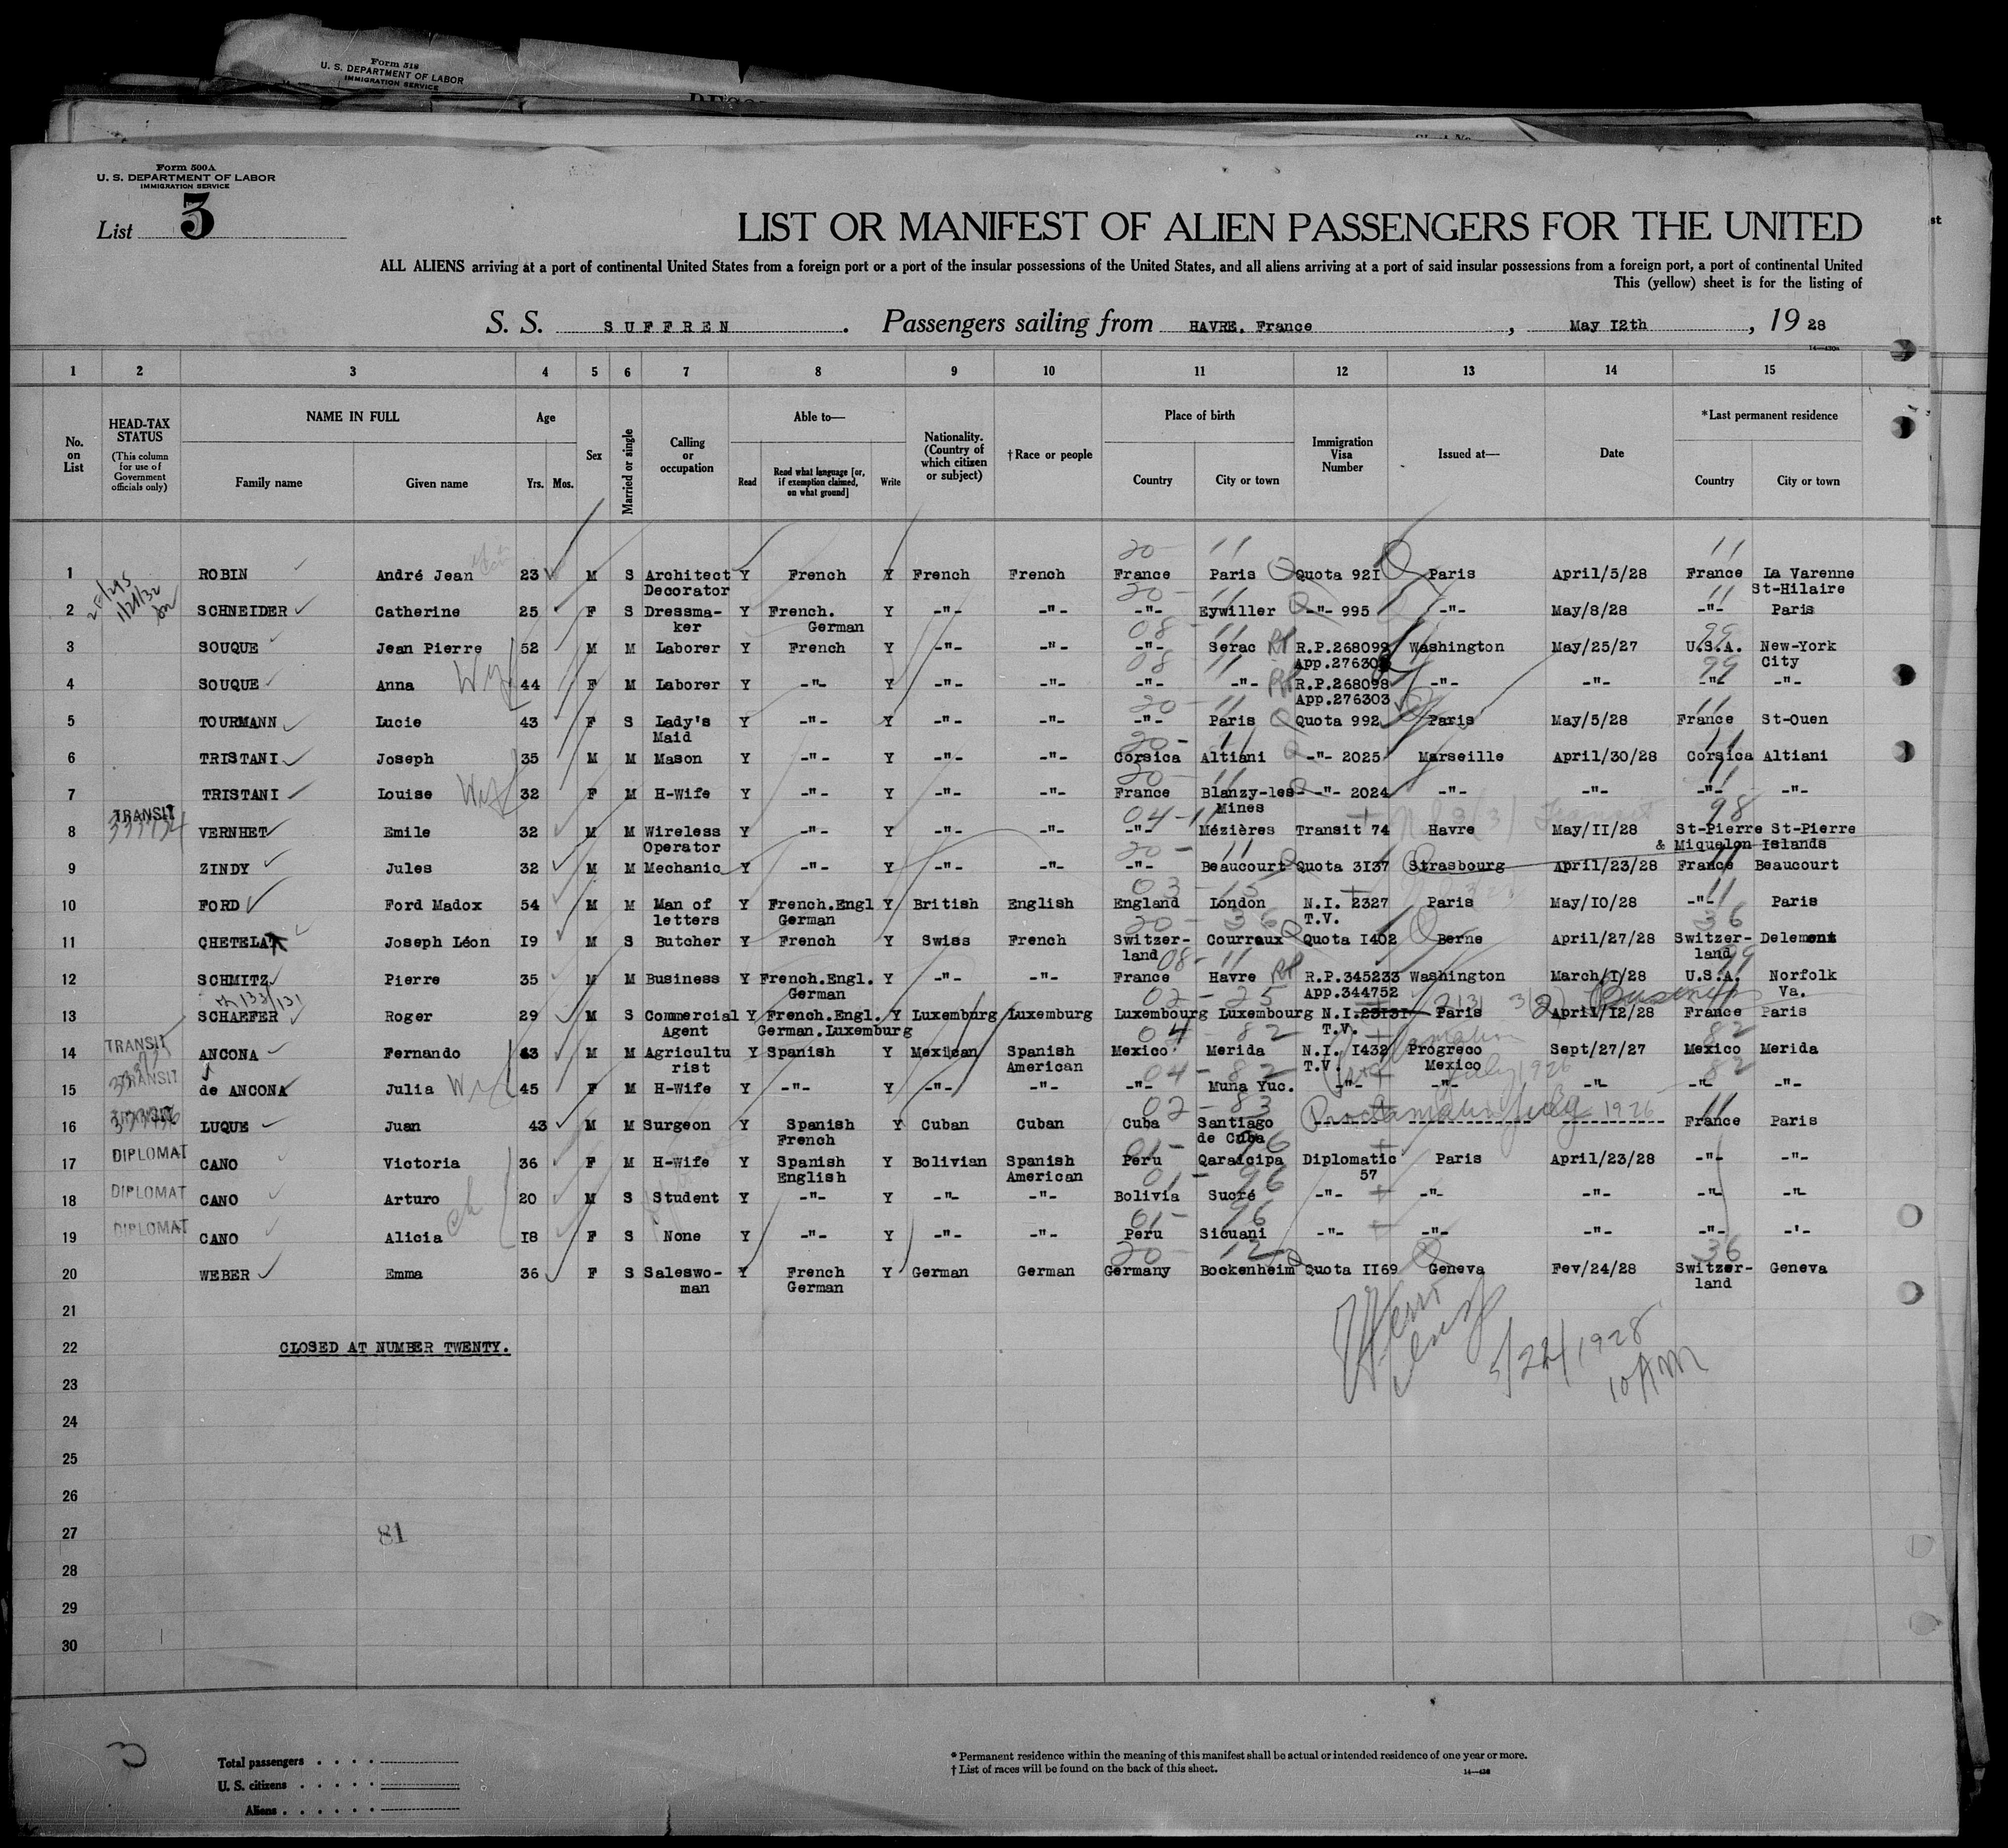 Form 518
U. S. DEPARTMENT OF LABOR
IMMIGRATION SERVICE
Form 500A
U. S. DEPARTMENT OF LABOR
IMMIGRATION SERVICE
List 3
LIST OR MANIFEST OF ALIEN PASSENGERS FOR THE UNITED
ALL ALIENS arriving at a port of continental United States from a foreign port or a port of the insular possessions of the United States, and all aliens arriving at a port of said insular possessions from a foreign port, a port of continental United
This (yellow) sheet is for the listing of
S. S. SUFFREN. Passengers sailing from HAVRE. France, May I2th, 19 28
1 2 3 4 5 6 7 8 9 10 11 12 13 14 15
No. on List
HEAD-TAX STATUS (This column for use of Government officials only)
NAME IN FULL Family name Given name
Age Yrs. Mos.
Sex
Married or single
Calling or occupation
Able to— Read Read what language [or, if exemption claimed, on what ground] Write
Nationality. (Country of which citizen or subject)
†Race or people
Place of birth Country City or town
Immigration Visa Number
Issued at—
Date
*Last permanent residence Country City or town
1 ROBIN André Jean 23 M S Architect Decorator Y French Y French French France Paris Quota 92I Paris April/5/28 France La Varenne St-Hilaire
2 SCHNEIDER Catherine 25 F S Dressma-ker Y French. German Y -"- -"- -"- Eywiller -"- 995 -"- May/8/28 -"- Paris
3 SOUQUE Jean Pierre 52 M M Laborer Y French Y -"- -"- -"- Serac R.P.268099 Washington May/25/27 U.S.A. New-York City
4 SOUQUE Anna 44 F M Laborer Y -"- Y -"- -"- -"- -"- R.P.268098 App.276303 -"- -"- -"- -"-
5 TOURMANN Lucie 43 F S Lady's Maid Y -"- Y -"- -"- -"- Paris Quota 992 Paris May/5/28 France St-Ouen
6 TRISTANI Joseph 35 M M Mason Y -"- Y -"- -"- Corsica Altiani -"- 2025 Marseille April/30/28 Corsica Altiani
7 TRISTANI Louise 32 F M H-Wife Y -"- Y -"- -"- France Blanzy-les-Mines -"- 2024 -"- -"- -"- -"-
TRANSIT
8 VERNHET Emile 32 M M Wireless Operator Y -"- Y -"- -"- -"- Mézières Transit 74 Havre May/II/28 St-Pierre St-Pierre & Miquelon Islands
9 ZINDY Jules 32 M M Mechanic Y -"- Y -"- -"- -"- Beaucourt Quota 3I37 Strasbourg April/23/28 France Beaucourt
10 FORD Ford Madox 54 M M Man of letters Y French.Engl German Y British English England London N.I. 2327 T.V. Paris May/I0/28 -"- Paris
11 CHETELAT Joseph Léon I9 M S Butcher Y French Y Swiss French Switzer-land Courroux Quota I402 Berne April/27/28 Switzer-land Delemont
12 SCHMITZ Pierre 35 M M Business Y French.Engl. German Y -"- -"- France Havre R.P.345233 App.344752 Washington March/I/28 U.S.A. Norfolk Va.
13 SCHAEFER Roger 29 M S Commercial Agent Y French.Engl. German.Luxemburg Y Luxemburg Luxemburg Luxembourg Luxembourg N.I.23I3I T.V. Paris April/I2/28 France Paris
TRANSIT
14 ANCONA Fernando 43 M M Agricultu rist Y Spanish Y Mexican Spanish American Mexico Merida N.I. I432 T.V. Progreco Mexico Sept/27/27 Mexico Merida
TRANSIT
15 de ANCONA Julia 45 F M H-Wife Y -"- Y -"- -"- -"- Muna Yuc. -"- -"- -"- -"- -"-
16 LUQUE Juan 43 M M Surgeon Y Spanish French Y Cuban Cuban Cuba Santiago de Cuba Proclamation July 1926 France Paris
DIPLOMAT
17 CANO Victoria 36 F M H-Wife Y Spanish English Y Bolivian Spanish American Peru Qaraicipa Diplomatic 57 Paris April/23/28 -"- -"-
DIPLOMAT
18 CANO Arturo 20 M S Student Y -"- Y -"- -"- Bolivia Sucré -"- -"- -"- -"- -"-
DIPLOMAT
19 CANO Alicia I8 F S None Y -"- Y -"- -"- Peru Siouani -"- -"- -"- -"- -'-
20 WEBER Emma 36 F S Saleswo-man Y French German Y German German Germany Bockenheim Quota II69 Geneva Fev/24/28 Switzer-land Geneva
21
22 CLOSED AT NUMBER TWENTY.
5/22/1928
10 AM
23
24
25
26
27
81
28
29
30
3
Total passengers
U. S. citizens
Aliens
* Permanent residence within the meaning of this manifest shall be actual or intended residence of one year or more.
† List of races will be found on the back of this sheet.